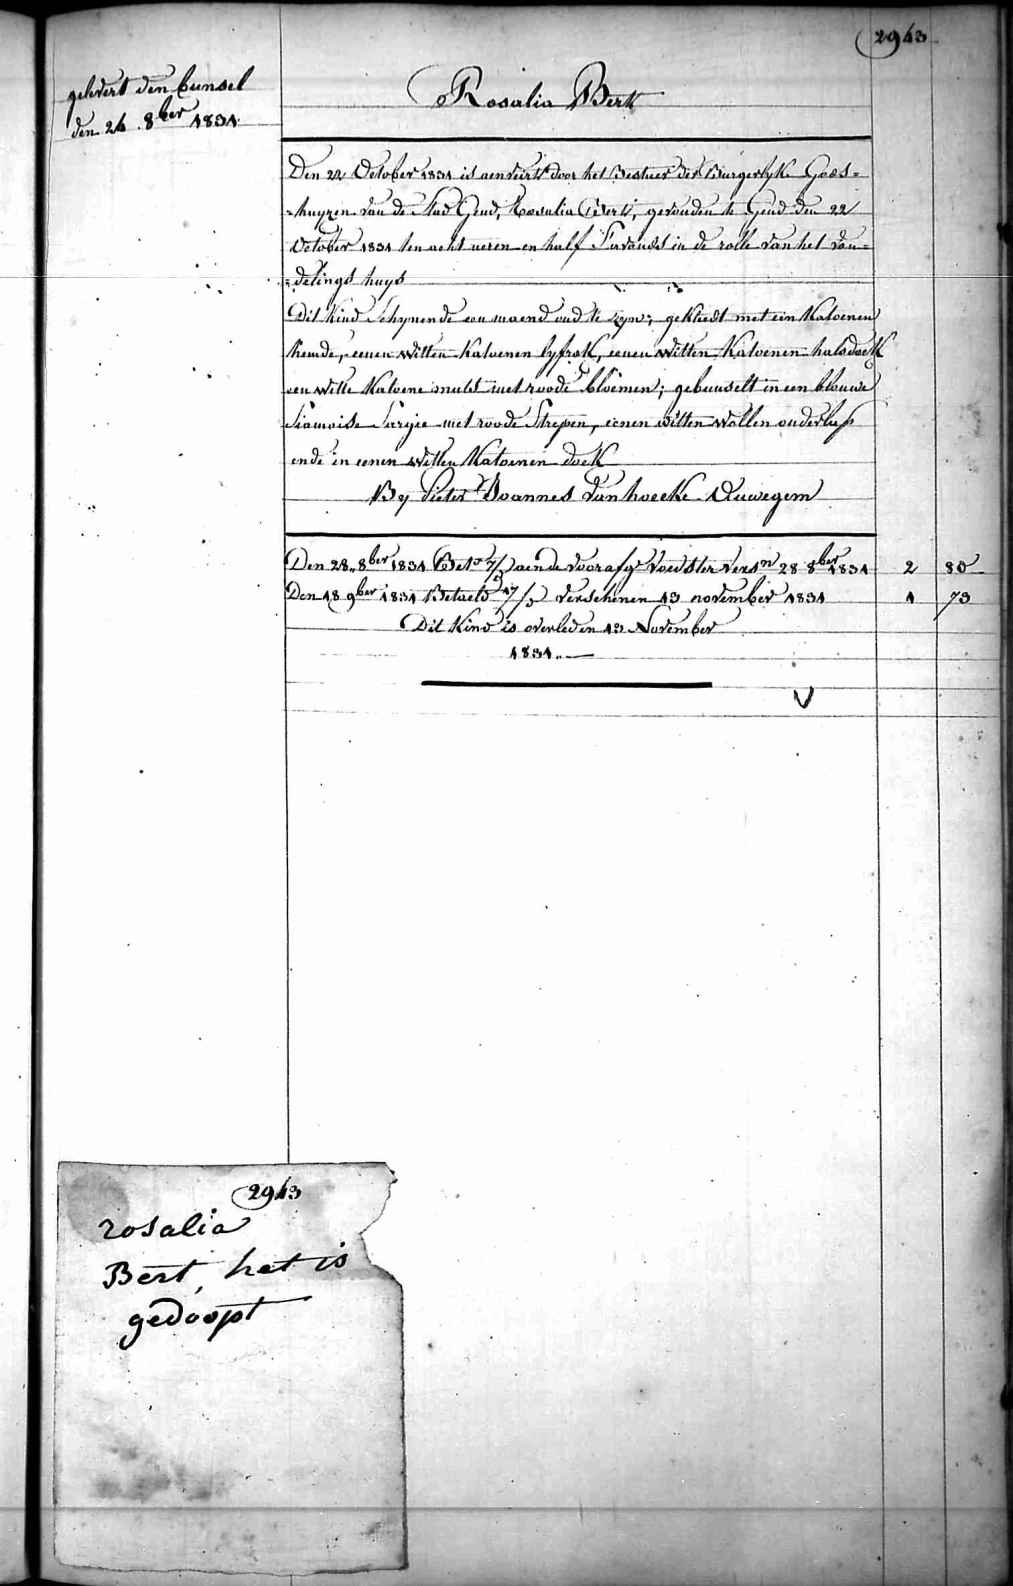 2943
gelevert den bunsel
den 24 8ber 1831
Rosalia Bert
Den 22 October 1831 is aenveird door het Bestuer der Burgerlyke Goes=
=huyzen van de Stad Gend, Rosalia Bert, gevonden te Gend den 22
October 1831 ten acht ueren en half S'avonds in de rolle van het von=
=delings huys
Dit Kind Schynende een maend oud te zyn; gekleedt met een Katoenen
hemde, eenen witten Katoenen lyfrok, eenen witten Katoenen halsdoek
een witte Katoene muts met roode bloemen; gebunselt in een blauwe
Siamoise Sargie met roode Strepen, eenen witten wollen onderlap
ende in eenen witten Katoenen doek
By Pieter Joannes Vanhoecke Auwegem
Den 28 8ber 1831 Bet. 7/ aende voorafge voedster versn 28 8ber 1831 2 80
Den 18 9ber 1831 Betaeld 17/ verschenen 13 november 1831 1 73
Dit Kind is overleden 13 November
1831.
2943
rosalia
Bert, het is
gedoopt